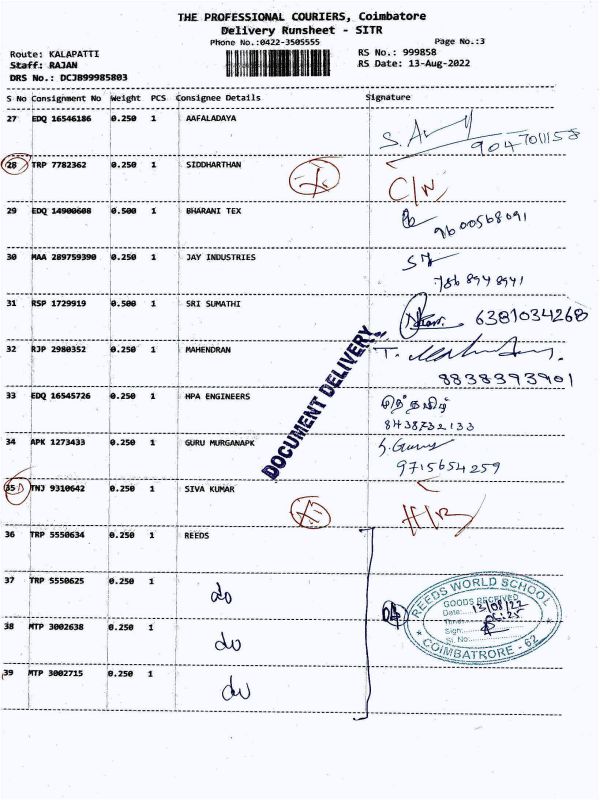 THE PROFESSIONAL COURIERS, Coimbatore
Delivery Runsheet - SITR
Phone No.:0422-3505555 Page No.:3
Route: KALAPATTI RS No.: 999858
Staff: RAJAN RS Date: 13-Aug-2022
DRS No.: DCJB99985803
S No Consignment No Weight PCS Consignee Details Signature
27 EDQ 16546186 0.250 1 AAFALADAYA
9047011158
28 TRP 7782362 0.250 1 SIDDHARTHAN
C/N
29 EDQ 14900608 0.500 1 BHARANI TEX
9600568091
30 MAA 289759390 0.250 1 JAY INDUSTRIES
786 894 8941
31 RSP 1729919 0.500 1 SRI SUMATHI
6381034268
32 RJP 2980352 0.250 1 MAHENDRAN
8838393901
DOCUMENT DELIVERY
33 EDQ 16545726 0.250 1 HPA ENGINEERS
8438732133
34 APK 1273433 0.250 1 GURU MURGANAPK
S. Guru
9715654259
35 TNJ 9310642 0.250 1 SIVA KUMAR
36 TRP 5550634 0.250 1 REEDS
37 TRP 5550625 0.250 1
do
38 MTP 3002638 0.250 1
do
39 MTP 3002715 0.250 1
do
REEDS WORLD SCHOOL
GOODS RECEIVED
Date: 13/08/22
Time:
Sign:
Sl. No:
COIMBATRORE - 62